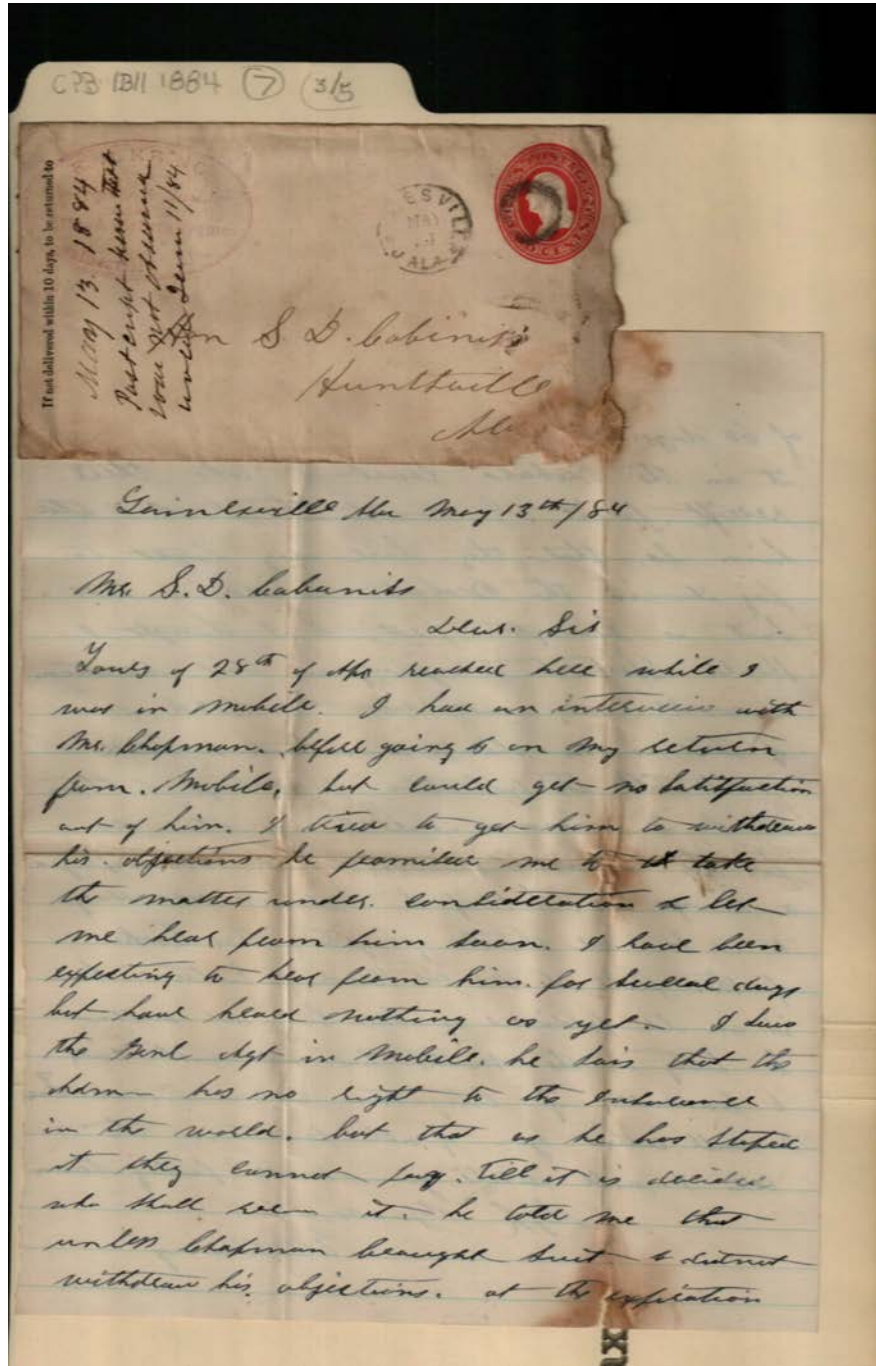 CPB 1884 7 3/5
If not delivered within 10 days, to be returned to
May 13. 1884
Postcript
was not observed
until 11/84
ESVILLE
ALA
S. D. Cabiniss
Huntsville
Gainesville Ala May 13th/84
Mr. S. D. Cabaniss
Dear. Sir
Yours of 28th of Apr reached here while I
was in Mobile. I had an interview with
Mr. Chapman. before going & on my return
from. Mobile, but could get no satisfaction
out of him. I tried to get him to withdraw
his objections he promised me to take
the matter under. consideration & let
me hear from him soon. I have been
expecting to hear from him. for several days
but have heard nothing as yet. I saw
the Genl Agt in Mobile. he sais that the
Adm has no right to the Insurance
in the world. but that as he has stoped
it they cannot pay. till it is decided
who shall it. he told me that
unless Chapman brought suit & did not
withdraw his. objections. at the expiration